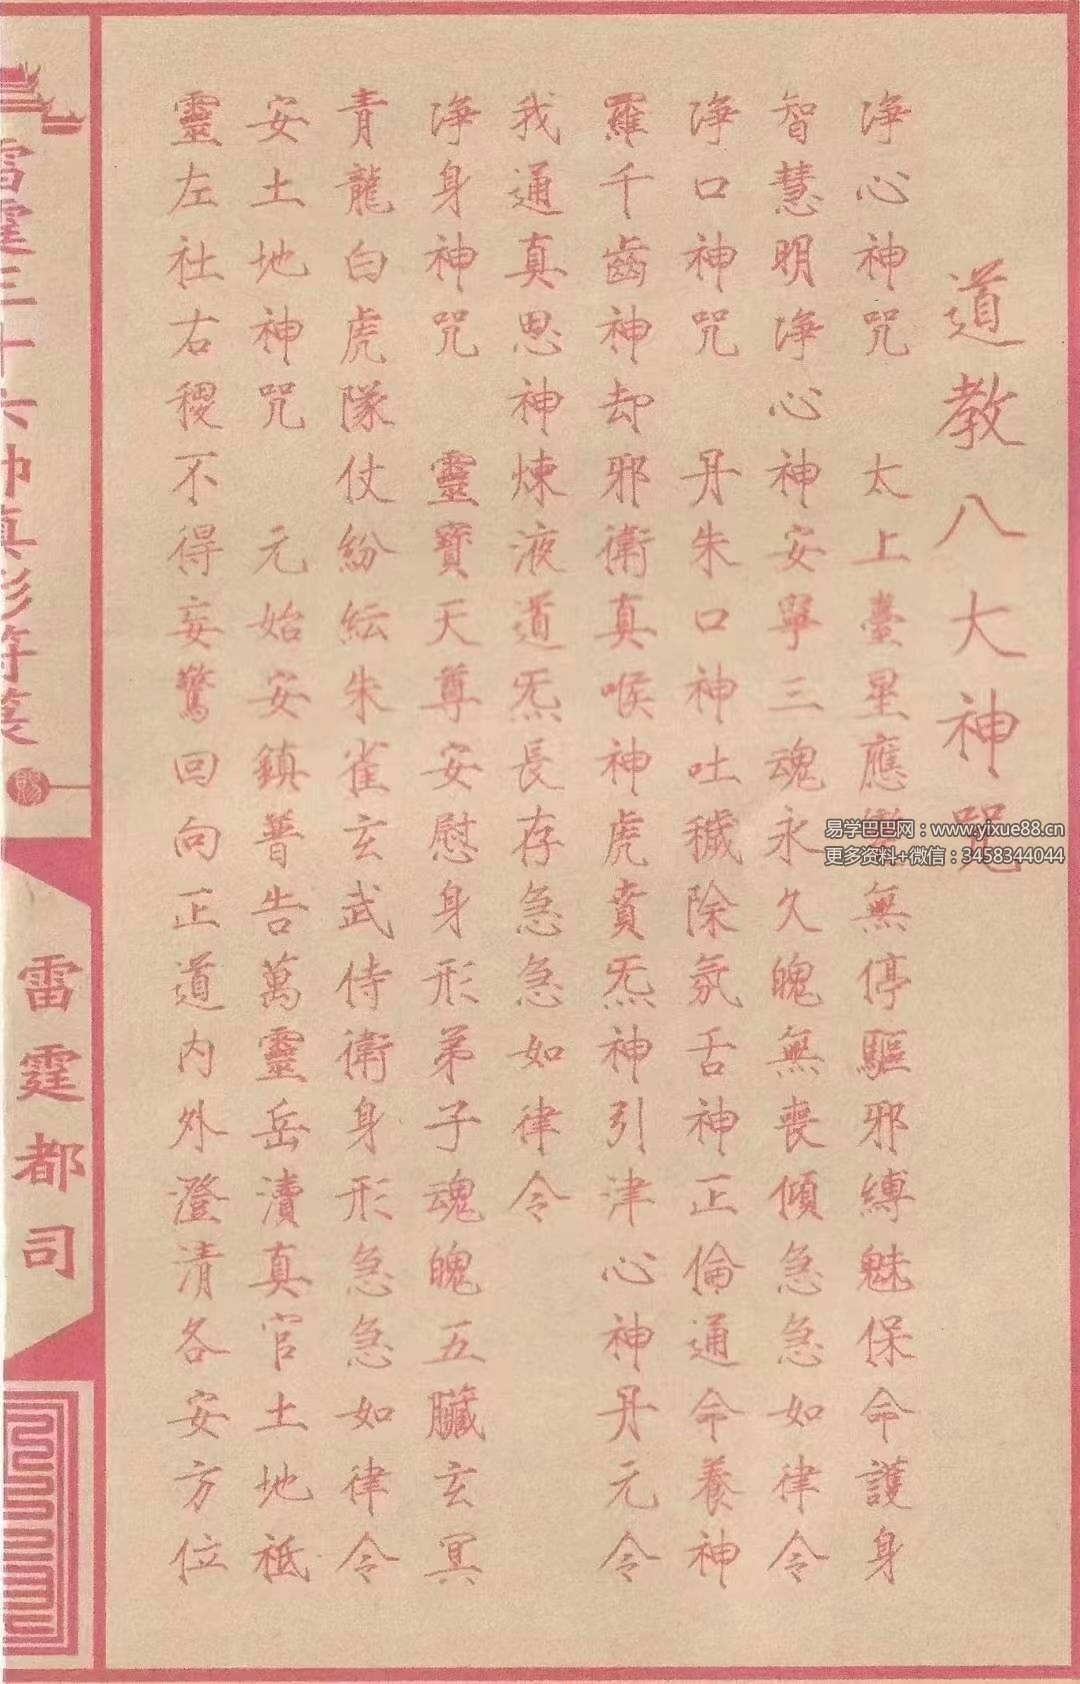 道教八大神咒
淨心神咒 太上臺星應變無停驅邪縛魅保命護身
智慧明淨心神安寧三魂永久魄無喪傾急急如律令
淨口神咒 丹朱口神吐穢除氛舌神正倫通命養神
羅千齒神却邪衛真喉神虎賁炁神引津心神丹元令
我通真思神煉液道炁長存急急如律令
淨身神咒 靈寶天尊安慰身形弟子魂魄五臟玄冥
青龍白虎隊仗紛紜朱雀玄武侍衛身形急急如律令
安土地神咒 元始安鎮普告萬靈岳瀆真官土地祇
靈左社右稷不得妄驚回向正道內外澄清各安方位
雷霆三十六帥真形符篆
賜
雷霆都司
易学巴巴网：www.yixue88.cn
更多资料+微信：3458344044